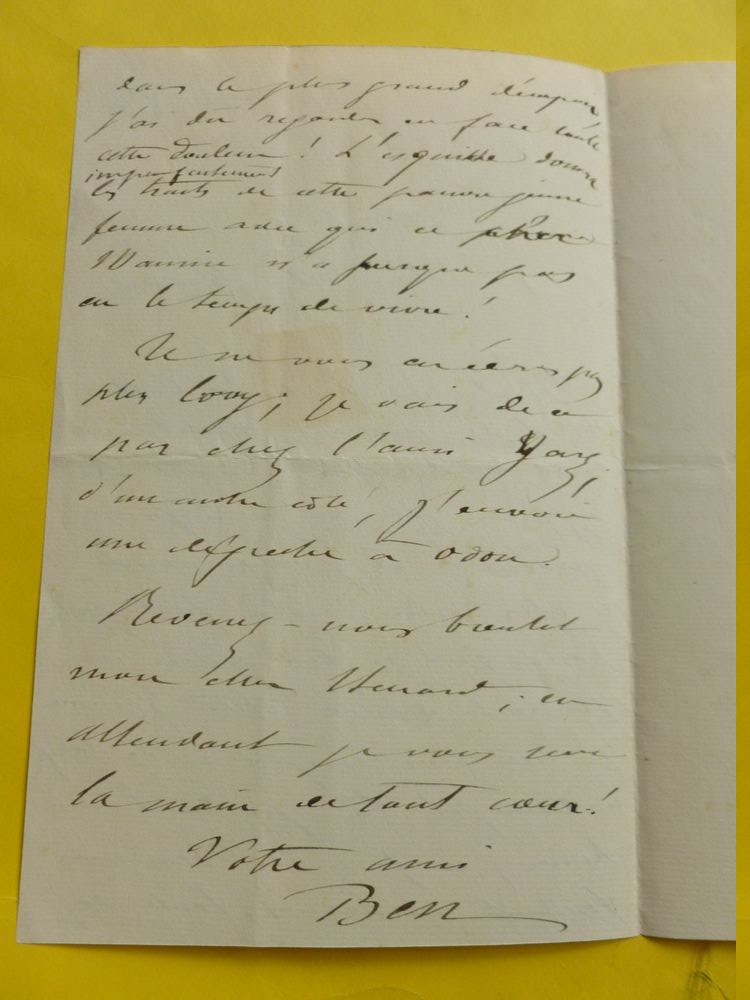 dans le plus grand
j'ai dû regarder en face toute
cette douleur ! L'esquisse donne
imparfaitement
les traits de cette pauvre jeune
femme avec qui ce cher
n'a presque pas
eu le temps de vivre !
Je ne vous en écris pas
plus long ; je vais de ce
pas chez l'ami
d'un autre côté, j'envoie
une dépêche à Odon.
Revenez-nous bientôt
mon cher ; en
attendant je vous serre
la main de tout cœur !
Votre ami
Ben